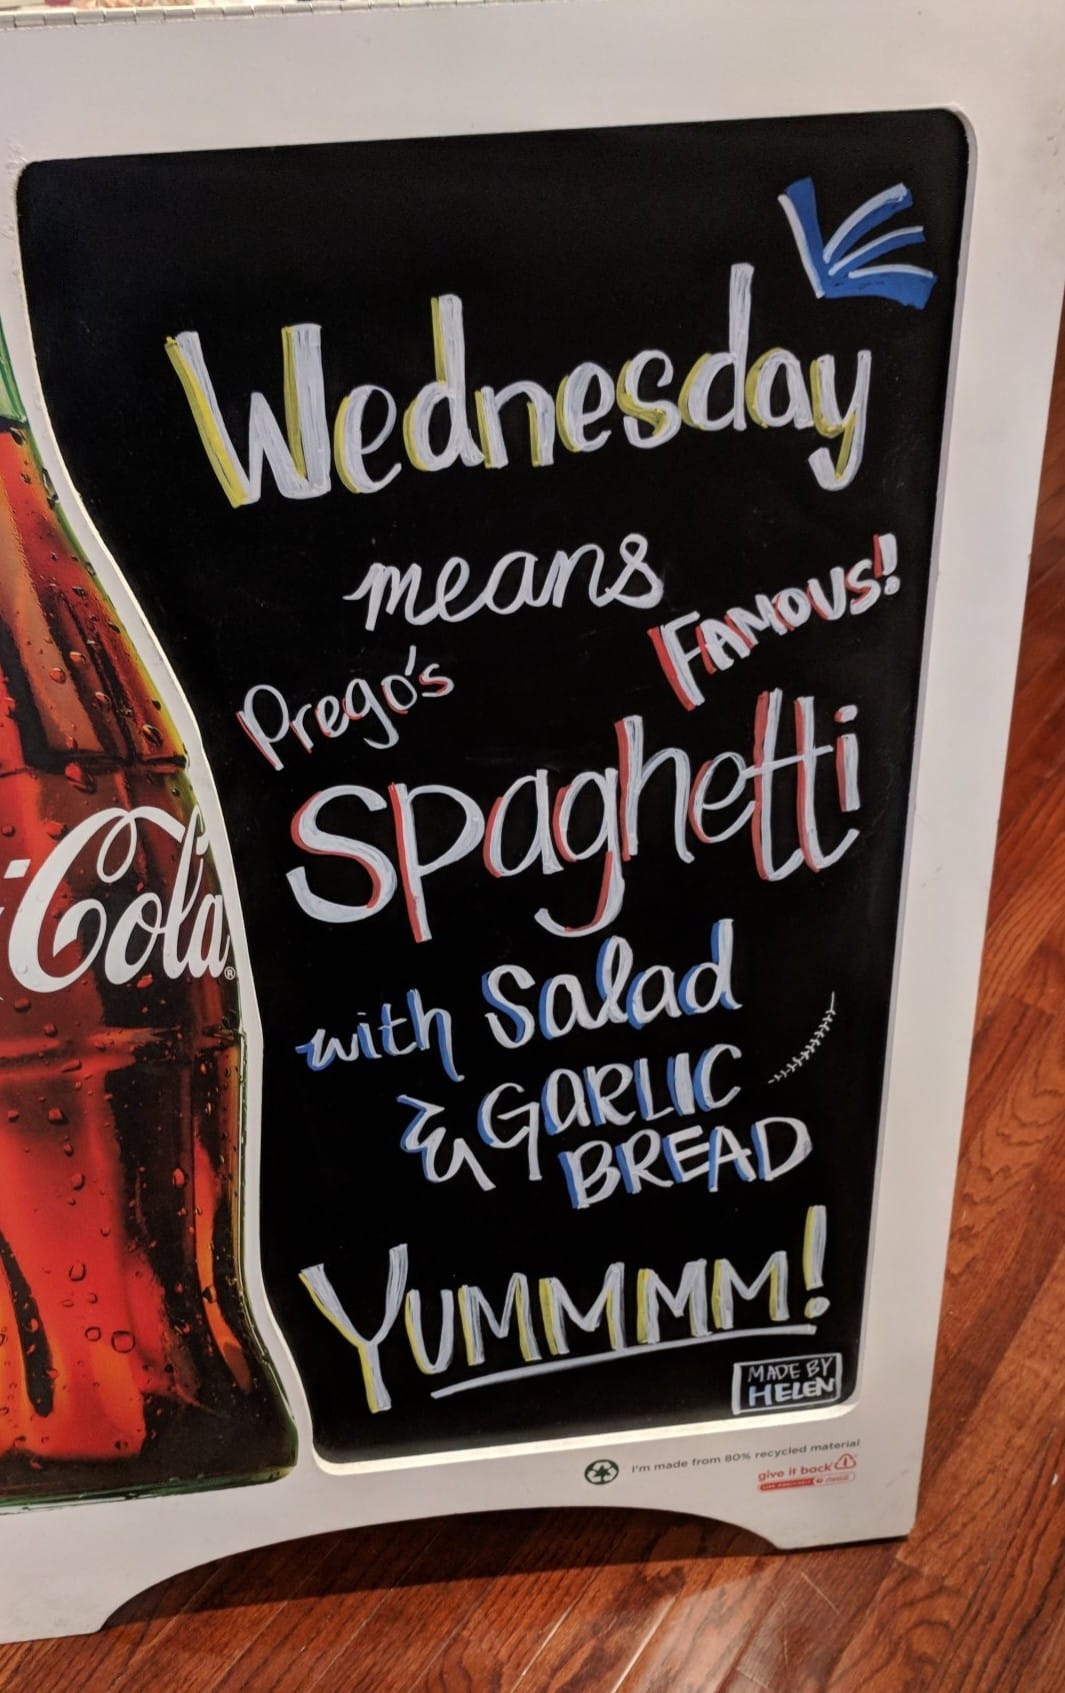 Wednesday
means
Prego's
FAMOUS!
Spaghetti
with Salad
& GARLIC
BREAD
YUMMMM!
MADE BY
HELEN
Cola®
I'm made from 80% recycled material
give it back